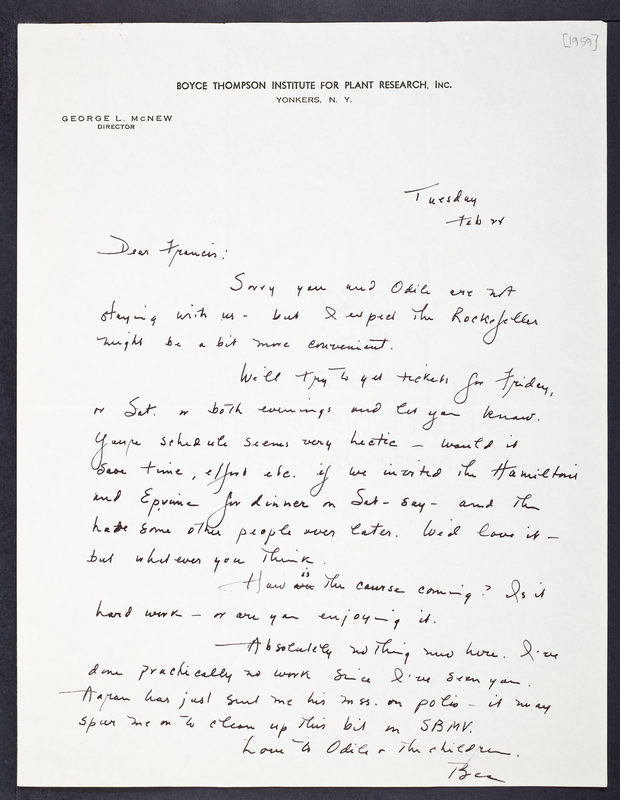 [1959]
BOYCE THOMPSON INSTITUTE FOR PLANT RESEARCH, INC.
YONKERS, N. Y.
GEORGE L. McNEW
DIRECTOR
Tuesday
Feb 24
Dear Francis:
Sorry you and Odile are not
staying with us - but I expect the Rockefeller
might be a bit more convenient.
We'll try to get tickets for Friday,
or Sat. or both evenings and let you know.
Your schedule seems very hectic - would it
save time, effort etc. if we invited the Hamiltons
and Ephrine for dinner on Sat - say - and then
have some other people over later. We'd love it -
but whatever you think.
How is the course coming? Is it
hard work - or are you enjoying it.
Absolutely nothing new here. I've
done practically no work since I've seen you.
Aaron has just sent me his mss. on polio - it may
spur me on to clean up this bit on SBMV.
Love to Odile + the children.
Bea